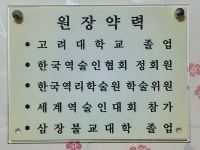 원장약력
• 고려대학교 졸업
• 한국역술인협회 정회원
• 한국역리학술원 학술위원
• 세계역술인대회 참가
• 삼장불교대학 졸업